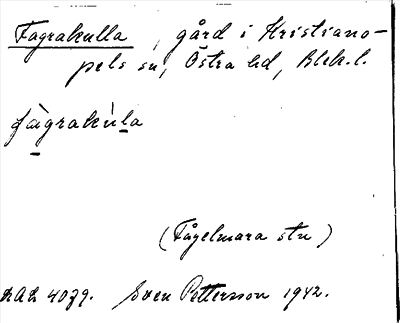 Fagrakulla, gård i Kristiano-
pels sn, Östra hd, Blek. l.
fàgrakùla
(Fågelmara stn)
LAL 4079. Sven Pettersson 1942.